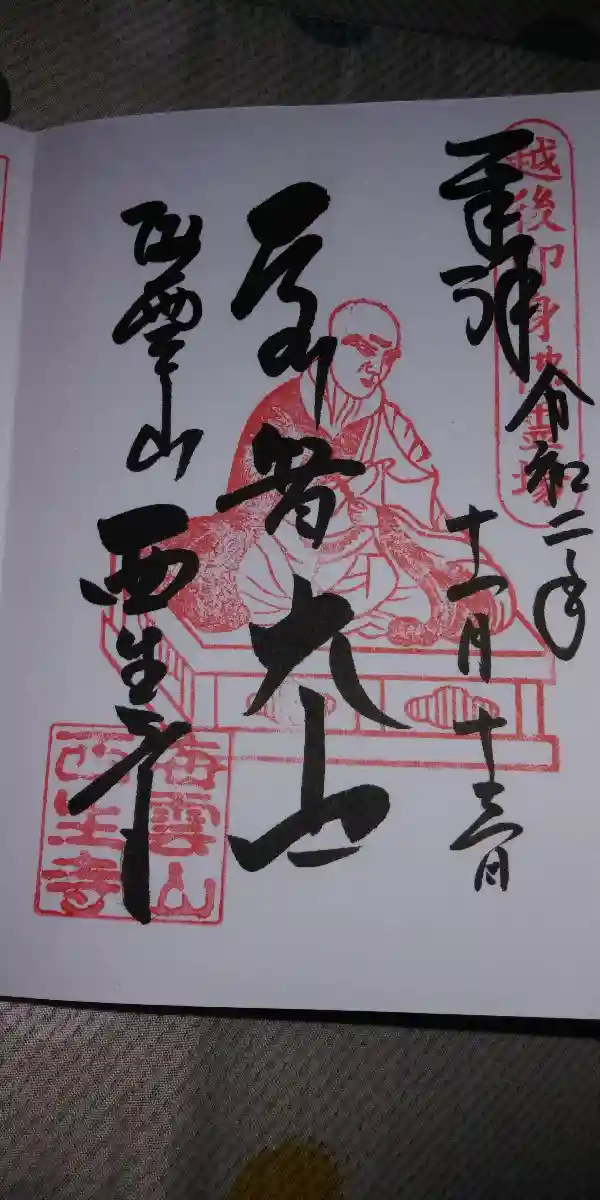 越後即身
奉拝
令和二年
十一月十三日
智大士
海雲山
西生寺
海雲山
西生寺